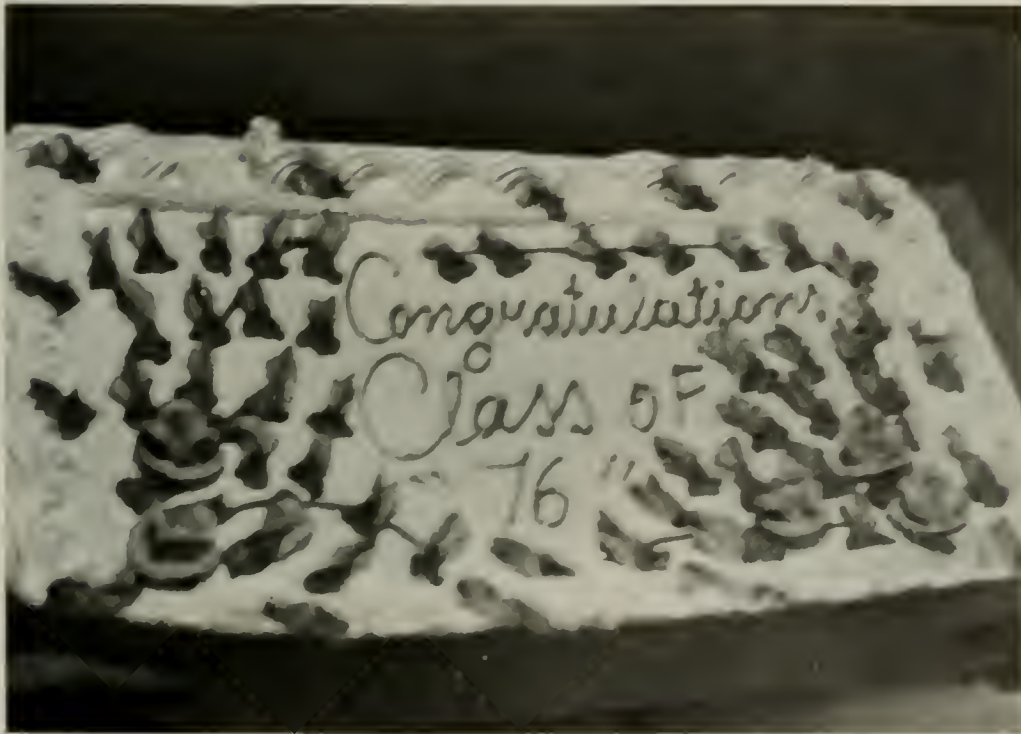 Congratulations,
Class of
"76"